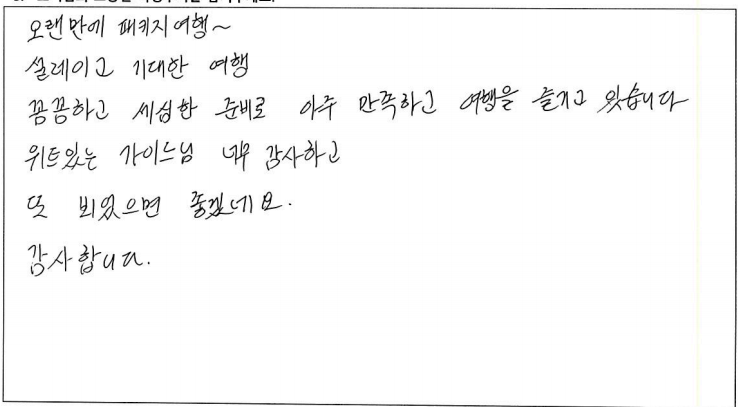 오랜만에 패키지여행~
설레이고 기대한 여행
꼼꼼하고 세심한 준비로 아주 만족하고 여행을 즐기고 있습니다
위트있는 가이드님 너무 감사하고
또 뵈었으면 좋겠네요.
감사합니다.